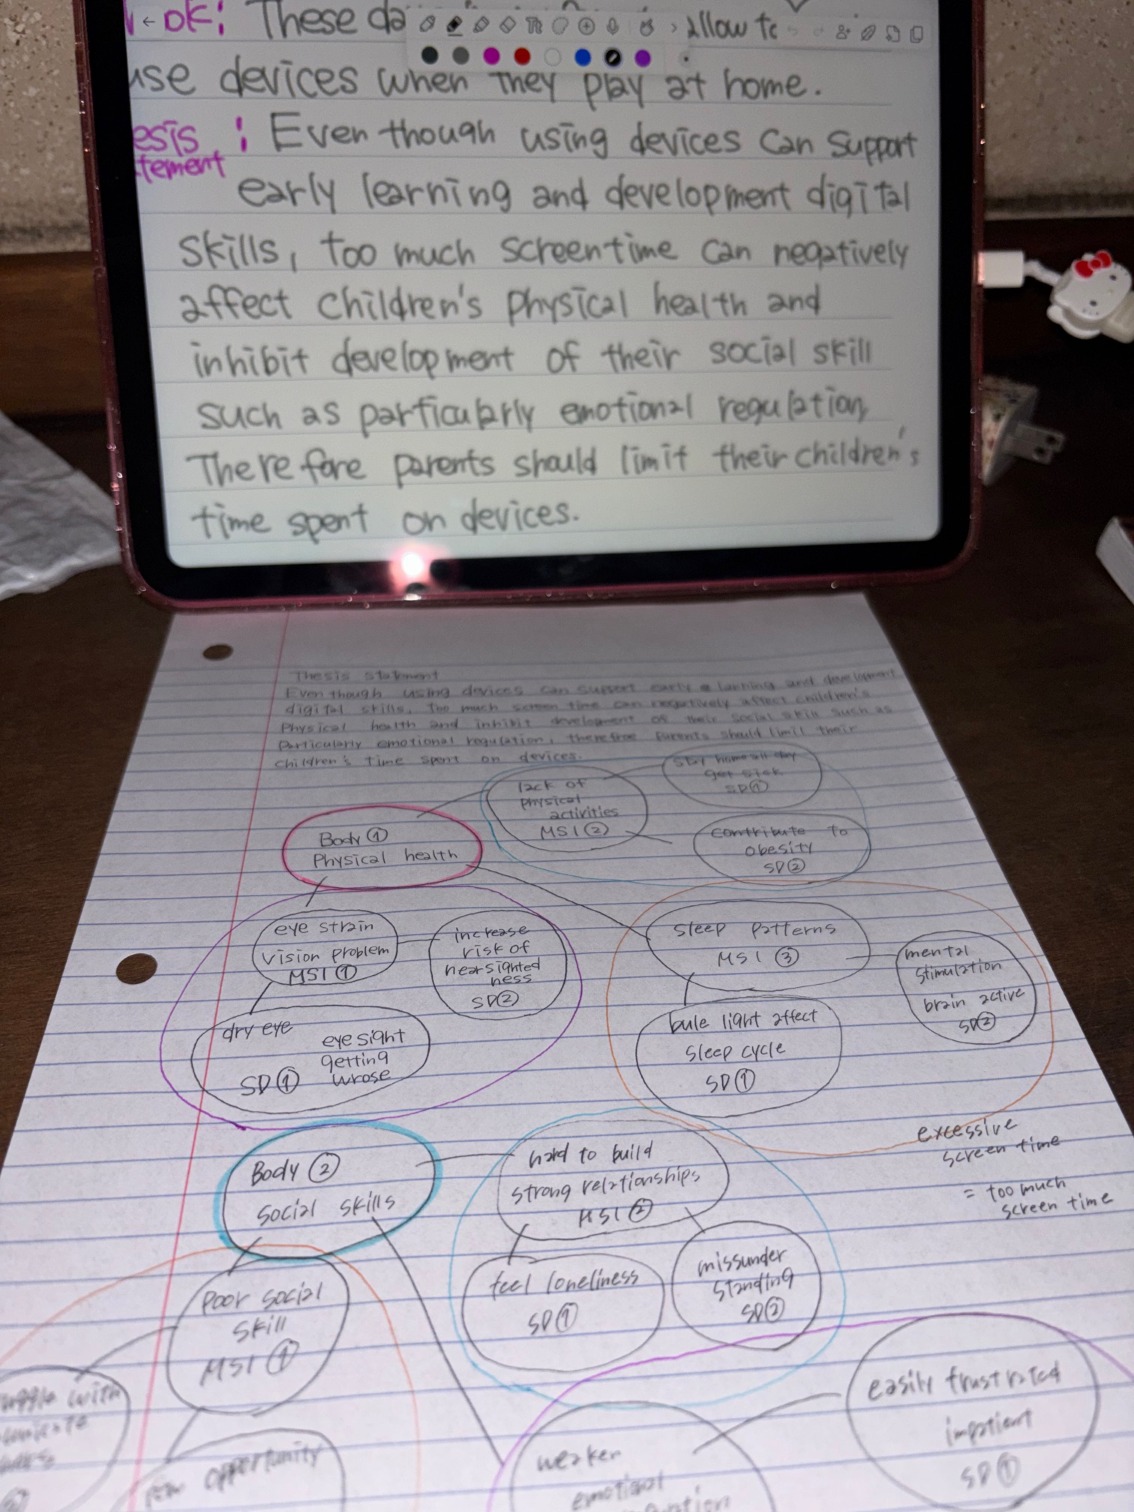 ok: These da
allow to
use devices when they play at home.
esis : Even though using devices can support
tement
early learning and development digital
skills, too much screentime can negatively
affect children's physical health and
inhibit development of their social skill
such as particularly emotional regulation,
Therefore parents should limit their children's
time spent on devices.
Thesis statement
Even though using devices can support early learning and development
digital skills, Too much screen time can negatively affect children's
Physical health and inhibit development of their social skill such as
Particularly emotional regulation, therefroe parents should limit their
children's time spent on devices.
lack of
physical
activities
MSI ②
stay home all day
get sick
SD①
contribute to
obesity
SD②
Body ①
Physical health
eye strain
vision problem
MSI ①
increase
risk of
nearsighted
ness
SD②
dry eye
eye sight
getting
wrose
SD ①
sleep patterns
MSI ③
mental
stimulation
brain active
SD②
bule light affect
sleep cycle
SD①
excessive
screen time
= too much
screen time
Body ②
social skills
hard to build
strong relationships
MSI ②
feel loneliness
SD①
missunder
standing
SD②
Poor social
skill
MSI ①
with
opportunity
weaker
emotional
easily frustrated
impatient
SD①